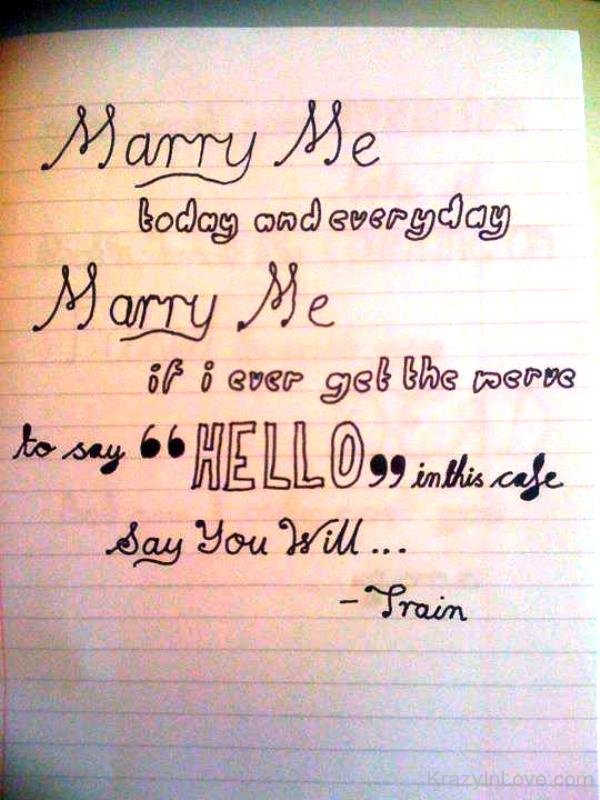 Marry Me
today and everyday
Marry Me
if i ever get the nerve
to say “HELLO” in this cafe
Say You Will...
-Train
KrazyInLove.com